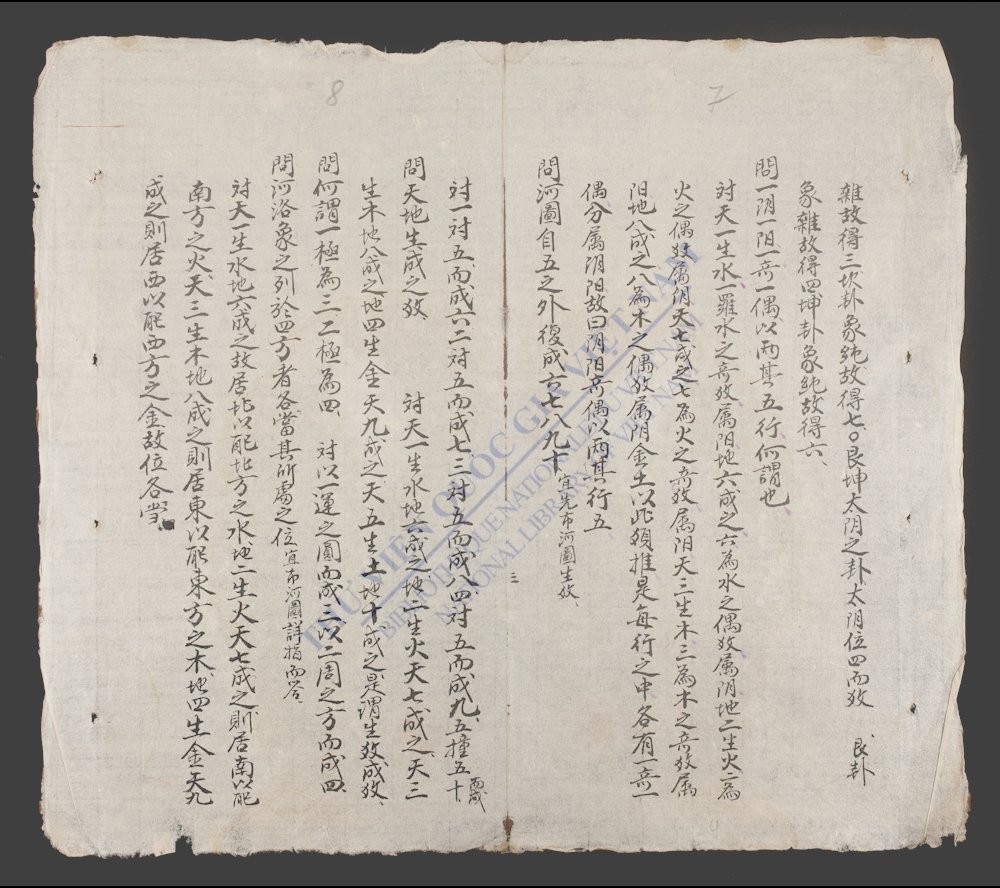 7
雜故得三坎卦象純故得七〇艮坤太阴之卦太阴位四而攷 艮卦
象雜故得四坤卦象純故得六、
問一阴一阳一竒一偶以两其五行何謂也
对天一生水一羅水之竒攷属阳地六成之六為水之偶攷属阴地二生火二為
火之偶攷属阴天七成之七為火之竒攷属阳天三生木三為木之竒攷属
阳地八成之八為木之偶攷属阴金土以此類推是每行之中各有一竒一
偶分属阴阳故曰阴阳竒偶以两其行五
問河圖自五之外復成六七八九十 宜先布河圖生攷、
三
8
对一对五而成六二对五而成七三对五而成八四对五而成九、五撞五十、而成
問天地生成之攷 对天一生水地六成之地二生火天七成之天三
生木地八成之地四生金天九成之天五生土地十成之是謂生攷成攷、
問何謂一極為三二極為四、 对以一運之圓而成三以二周之方而成四、
問河洛象之列於四方者各當其所處之位 宜布河圖詳指而答、
对天一生水地六成之故居北以配北方之水地二生火天七成之則居南以配
南方之火天三生木地八成之則居東以配東方之木地四生金天九
成之則居西以配西方之金故位各當
THƯ VIỆN QUỐC GIA VIỆT NAM
BIBLIOTHEQUE NATIONALE DU VIETNAM
NATIONAL LIBRARY OF VIETNAM